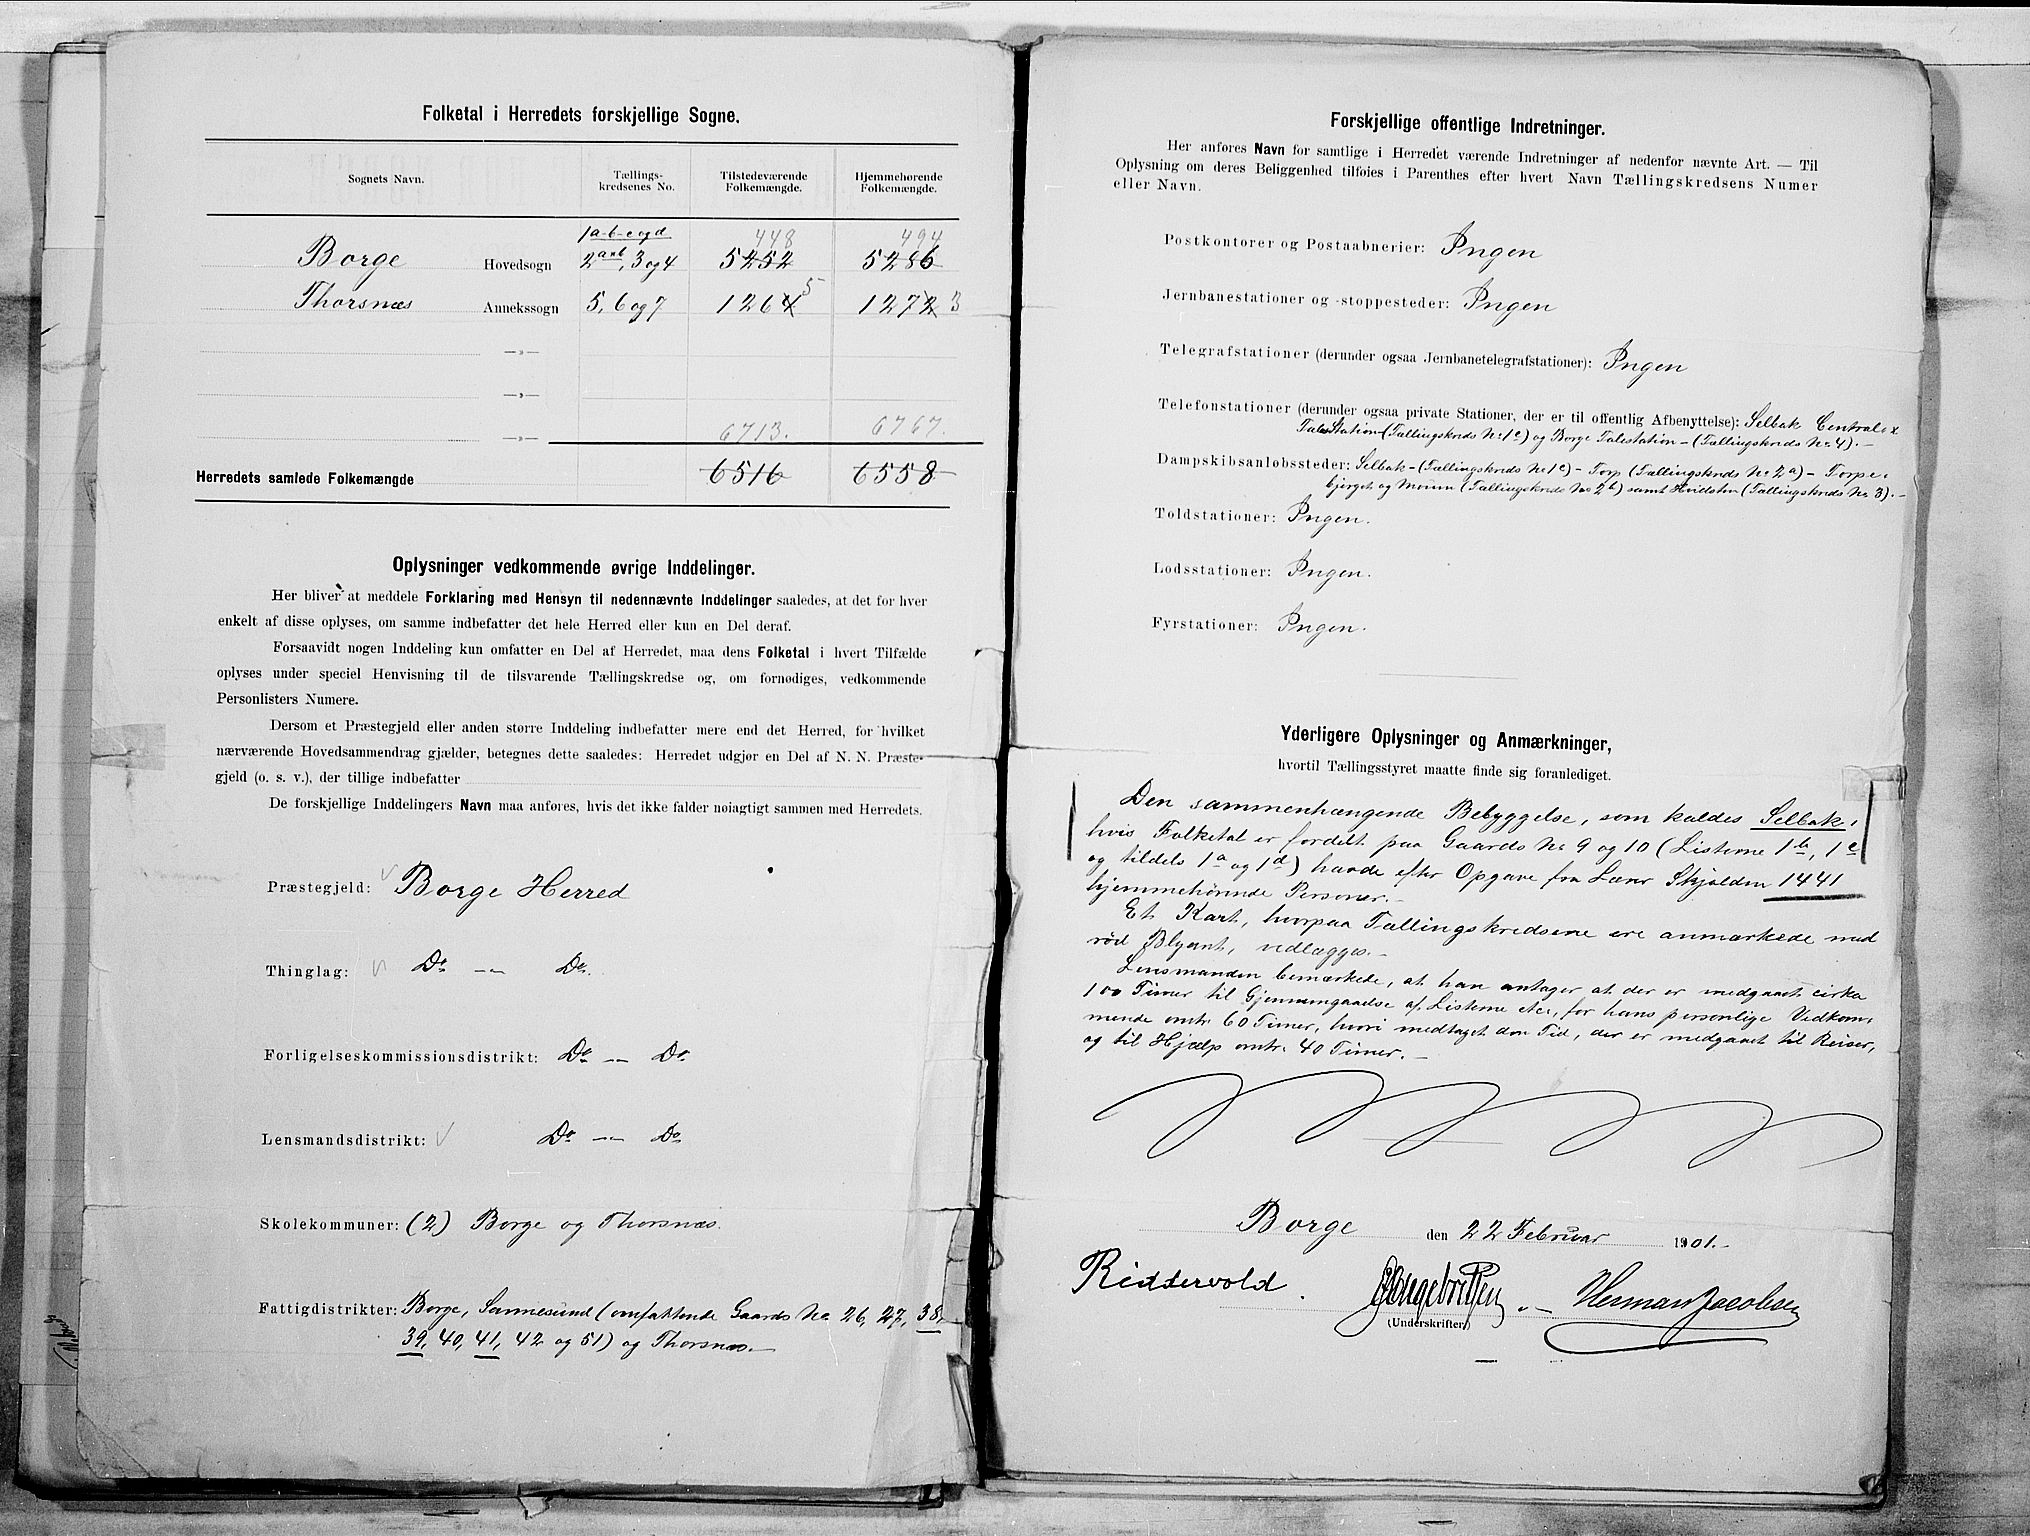 Folketal i Herredets forskjellige Sogne.
Sognets Navn. Tællings-kredsenes No. Tilstedeværende Folkemængde. Hjemmehørende Folkemængde.
1a-b-c og d 448 494
Borge Hovedsogn 2a og b, 3 og 4 5252 5286
Thorsnæs Annekssogn 5, 6 og 7 1264 5 1272 3
—„—
—„—
—„— 6713. 6767.
Herredets samlede Folkemængde 6516 6558
Oplysninger vedkommende øvrige Inddelinger.
Her bliver at meddele Forklaring med Hensyn til nedennævnte Inddelinger saaledes, at det for hver
enkelt af disse oplyses, om samme indbefatter det hele Herred eller kun en Del deraf.
Forsaavidt nogen Inddeling kun omfatter en Del af Herredet, maa dens Folketal i hvert Tilfælde
oplyses under speciel Henvisning til de tilsvarende Tællingskredse og, om fornødiges, vedkommende
Personlisters Numere.
Dersom et Præstegjeld eller anden større Inddeling indbefatter mere end det Herred, for hvilket
nærværende Hovedsammendrag gjælder, betegnes dette saaledes: Herredet udgjør en Del af N. N. Præste-
gjeld (o. s. v.), der tillige indbefatter
De forskjellige Inddelingers Navn maa anføres, hvis det ikke falder nøiagtigt sammen med Herredets.
Præstegjeld: Borge Herred
Thinglag: Do — Do.
Forligelseskommissionsdistrikt: Do — Do
Lensmandsdistrikt: Do — Do
Skolekommuner: (2) Borge og Thorsnæs.
Fattigdistrikter: Borge, Sannesund (omfattende Gaards No 26, 27, 38,
39, 40, 41, 42 og 51) og Thorsnæs.—
Forskjellige offentlige Indretninger.
Her anføres Navn for samtlige i Herredet værende Indretninger af nedenfor nævnte Art. — Til
Oplysning om deres Beliggenhed tilføies i Parenthes efter hvert Navn Tællingskredsens Numer
eller Navn.
Postkontorer og Postaabnerier: Ingen
Jernbanestationer og -stoppesteder: Ingen
Telegrafstationer (derunder ogsaa Jernbanetelegrafstationer): Ingen
Telefonstationer (derunder ogsaa private Stationer, der er til offentlig Afbenyttelse): Selbak Central- &
Talestation (Tællingskreds No 1c) og Borge Talestation — (Tællingskreds No 4).—
Dampskibsanløbssteder: Selbak — (Tællingskreds No 1c) — Torp (Tællingskreds No 2a) — Torpe-
bjerget og Moum (Tællingskreds No 2b) samt Hvidsten (Tællingskreds No 3).—
Toldstationer: Ingen.
Lodsstationer: Ingen.
Fyrstationer: Ingen.
Yderligere Oplysninger og Anmærkninger,
hvortil Tællingsstyret maatte finde sig foranlediget.
Den sammenhængende Bebyggelse, som kaldes Selbak,
hvis Folketal er fordelt paa Gaards No 9 og 10 (Listerne 1b, 1c
og tildels 1a og 1d) havde efter Opgave fra Lærer Skjolden 1441
hjemmehørende Personer.—
Et Kart, hvorpaa Tællingskredsene ere anmærkede med
rød Blyant, vedlægges.—
Lensmanden bemærkede, at han antager at der er medgaaet cirka
100 Timer til Gjennemgaaelse af Listerne etc., for hans personlige Vedkom-
mende omtr. 60 Timer, hvori medtaget den Tid, der er medgaaet til Reiser,
og til Hjælp omtr. 40 Timer.—
Borge den 22 Februar 1901.—
Riddervold. Engebretsen Herman Jacobsen
(Underskrifter)